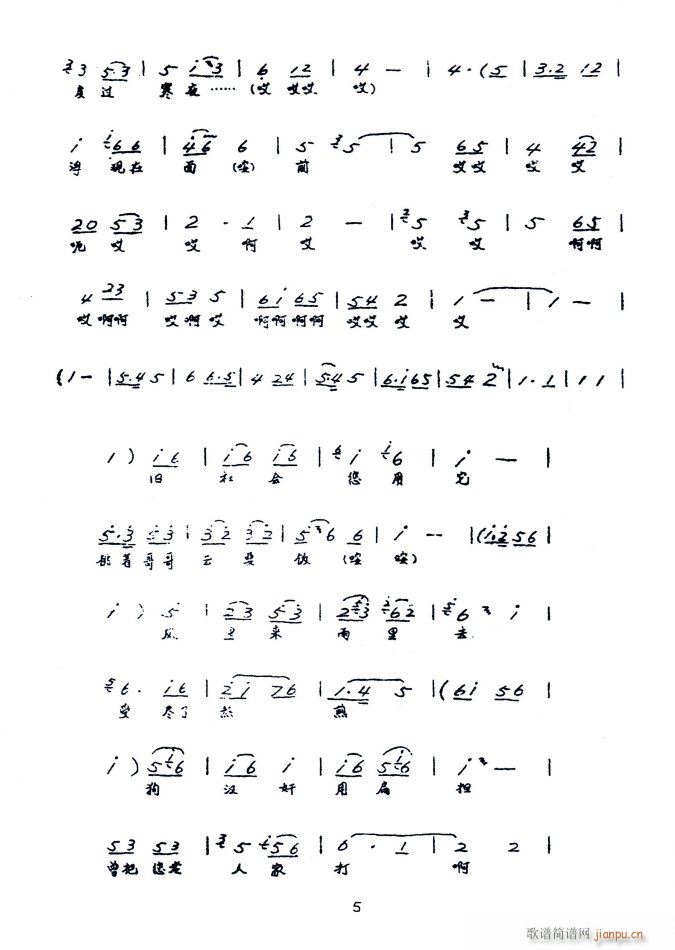 3 3 5·3 | 5 i 3 | 6 12 | 4 — | 4·(5 | 3·2 12 |
度过 寒夜……(哎 哎哎 哎)
i i66 | 46 6 | 5 35 | 5 65 | 4 42 |
浮现在 面(啦) 前 哎哎 哎 哎
20 53 | 2 · 1 | 2 — | 35 35 | 5 65 |
呃哎 哎 啊 哎 哎 哎 啊啊
4 23 | 53 5 | 6i 65 | 54 2 | 1 — | 1 — |
哎啊啊 哎啊哎 啊啊啊啊 哎哎哎 哎
(1— |5·45| 6 6·5| 4 24| 5·45 |6·i65|54 2|1·1| 1 1|
1 ) i6 | i6 i6 | 6i i6 | i — |
旧 社会 您用 它
5·3 53 | 32 32 | 5 6 6 | i — — |(1·256|
着哥哥 去 饭
i ) 5 | 23 53 | 2 3 62 | 56 i |
风 里来 雨里 去
56· i6 | 2i 76 | 1·4 5 |(6i 56 |
受 尽了 熬 煎
i ) 5 i6 | i6 i | i6 5 i6 | i — |
狗 汉奸 用扁 担
53 53 | 35 i56 | 6 · 1 | 2 2 |
曾把您老 人家 打 啊
5
歌谱简谱网
jianpu.cn